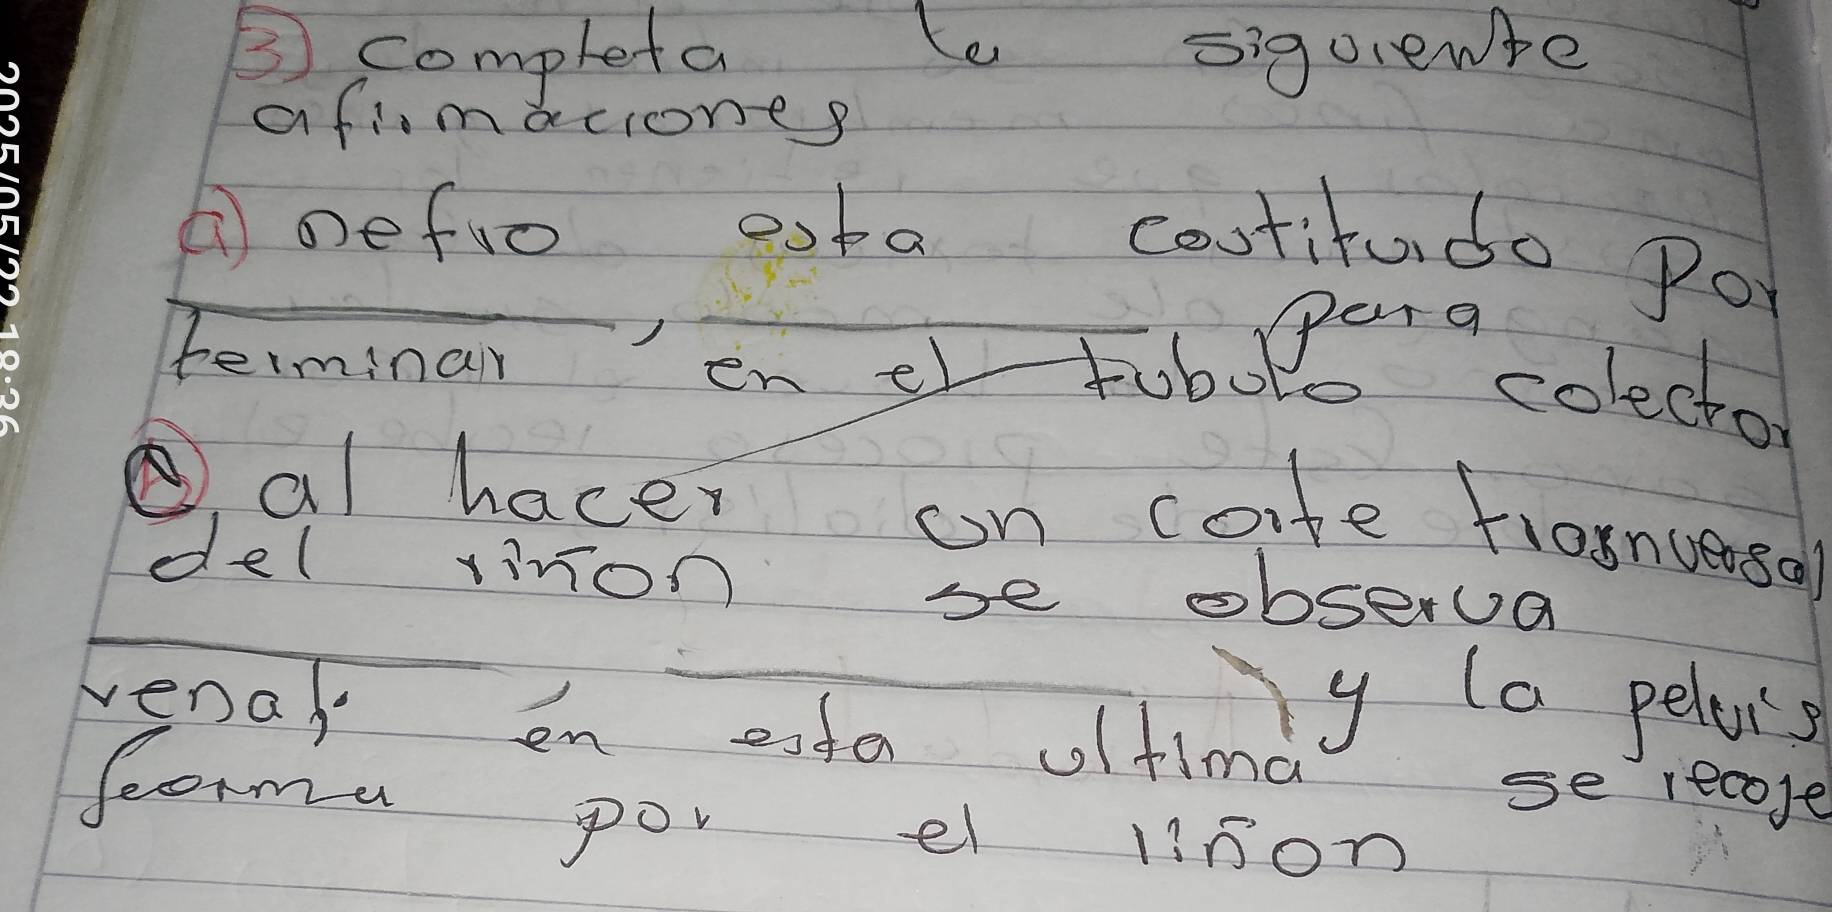 3) completa la siguiente
afirmaciones
a) nefro esta costituido por
________, ________ para
terminar en el tubulo colector
al hacer un corte trasnversal
del riñon se observa
________, ________ y la pelvis
renal. en esta ultima se recoje
feorma por el riñon
2025/05/22 18:36